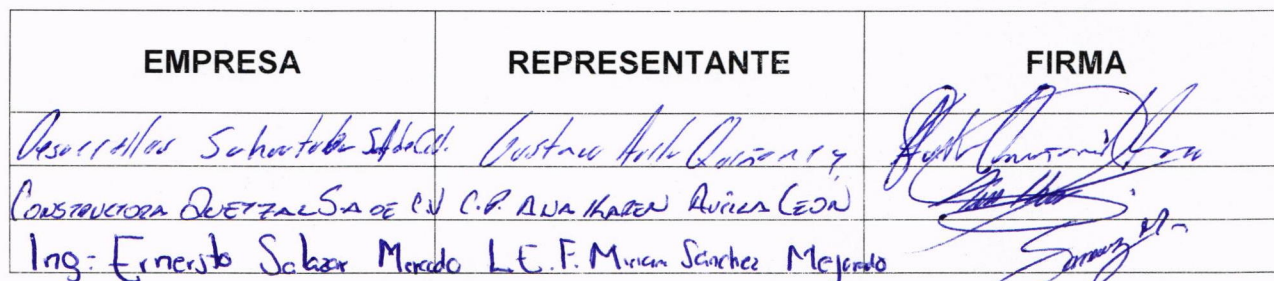 EMPRESA REPRESENTANTE FIRMA
Desarrollos S.A de C.V. Gustavo
CONSTRUCTORA QUETZAL S.A DE C.V C.P. ANA KAREN AVILA LEÓN
Ing. Ernersto Salazar Mercado L.E.F. Miriam Sánchez Mejorado